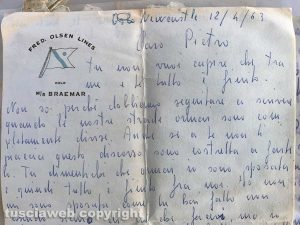 FRED. OLSEN LINES
OSLO
M/S BRAEMAR
Oslo Newcastle 12/4/63
Caro Pietro
tu non vuoi capire che tra
me e te tutto è finito.
Non so perché dobbiamo seguitare a scriverci
quando le nostre strade ormai sono com
pletamente divise. Anche se a te non ti
piaceva questo discorso sono costretta a farte
lo. Tu dimentichi che ormai io sono sposata
e quindi tutto è finito fra noi. Io non
mi sono sposata
tusciaweb copyright tusciaweb